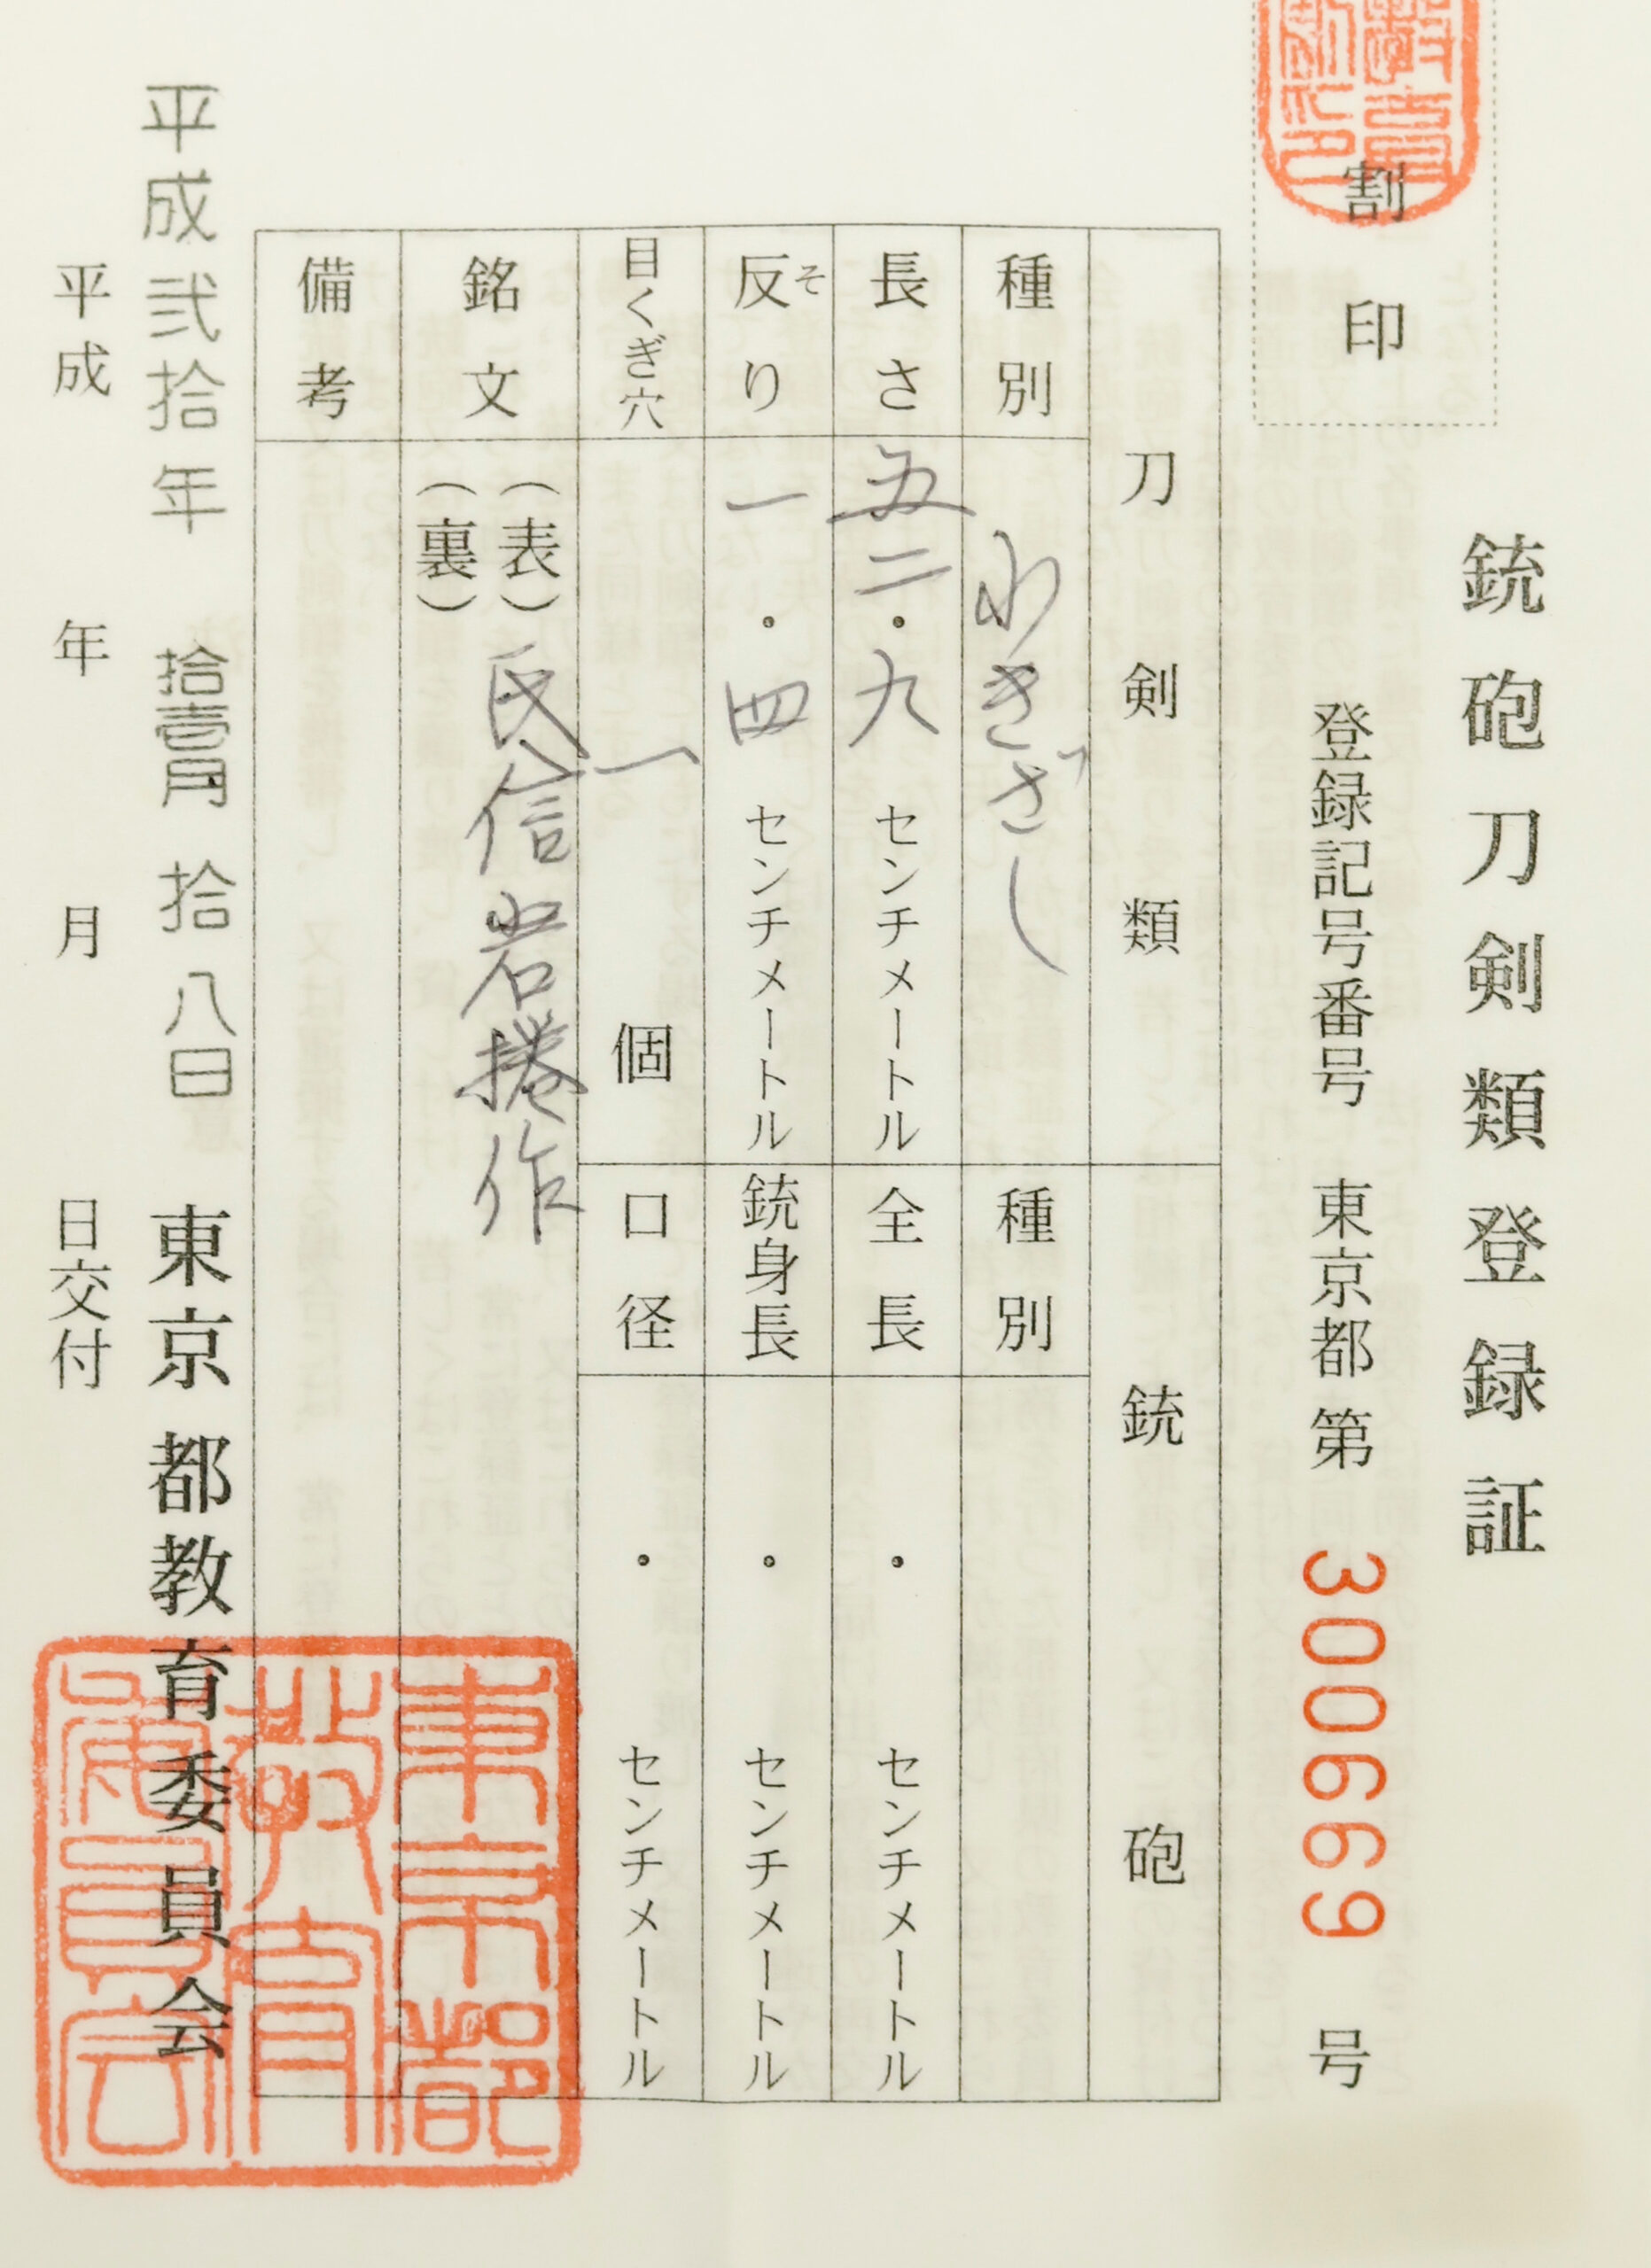 銃砲刀剣類登録証
割印
登録記号番号 東京都 第 300669 号
刀剣類
銃砲
種別 わきざし
種別
長さ 五二・九 センチメートル
全長 ・ センチメートル
反り そ 一・四 センチメートル
銃身長 ・ センチメートル
目くぎ穴 一 個
口径 ・ センチメートル
銘文 (表) 氏信岩捲作
(裏)
備考
平成弐拾年 拾壹月 拾八日 東京都教育委員会
東京都
教育
委員会
平成 年 月 日交付